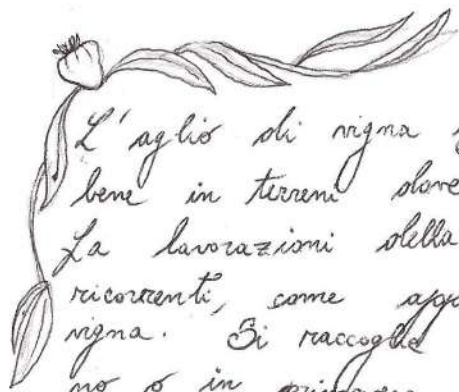 L'aglio di vigna
bene in terreni dove
La lavorazioni della
ricorrenti, come
vigna. Si raccoglie
no o in